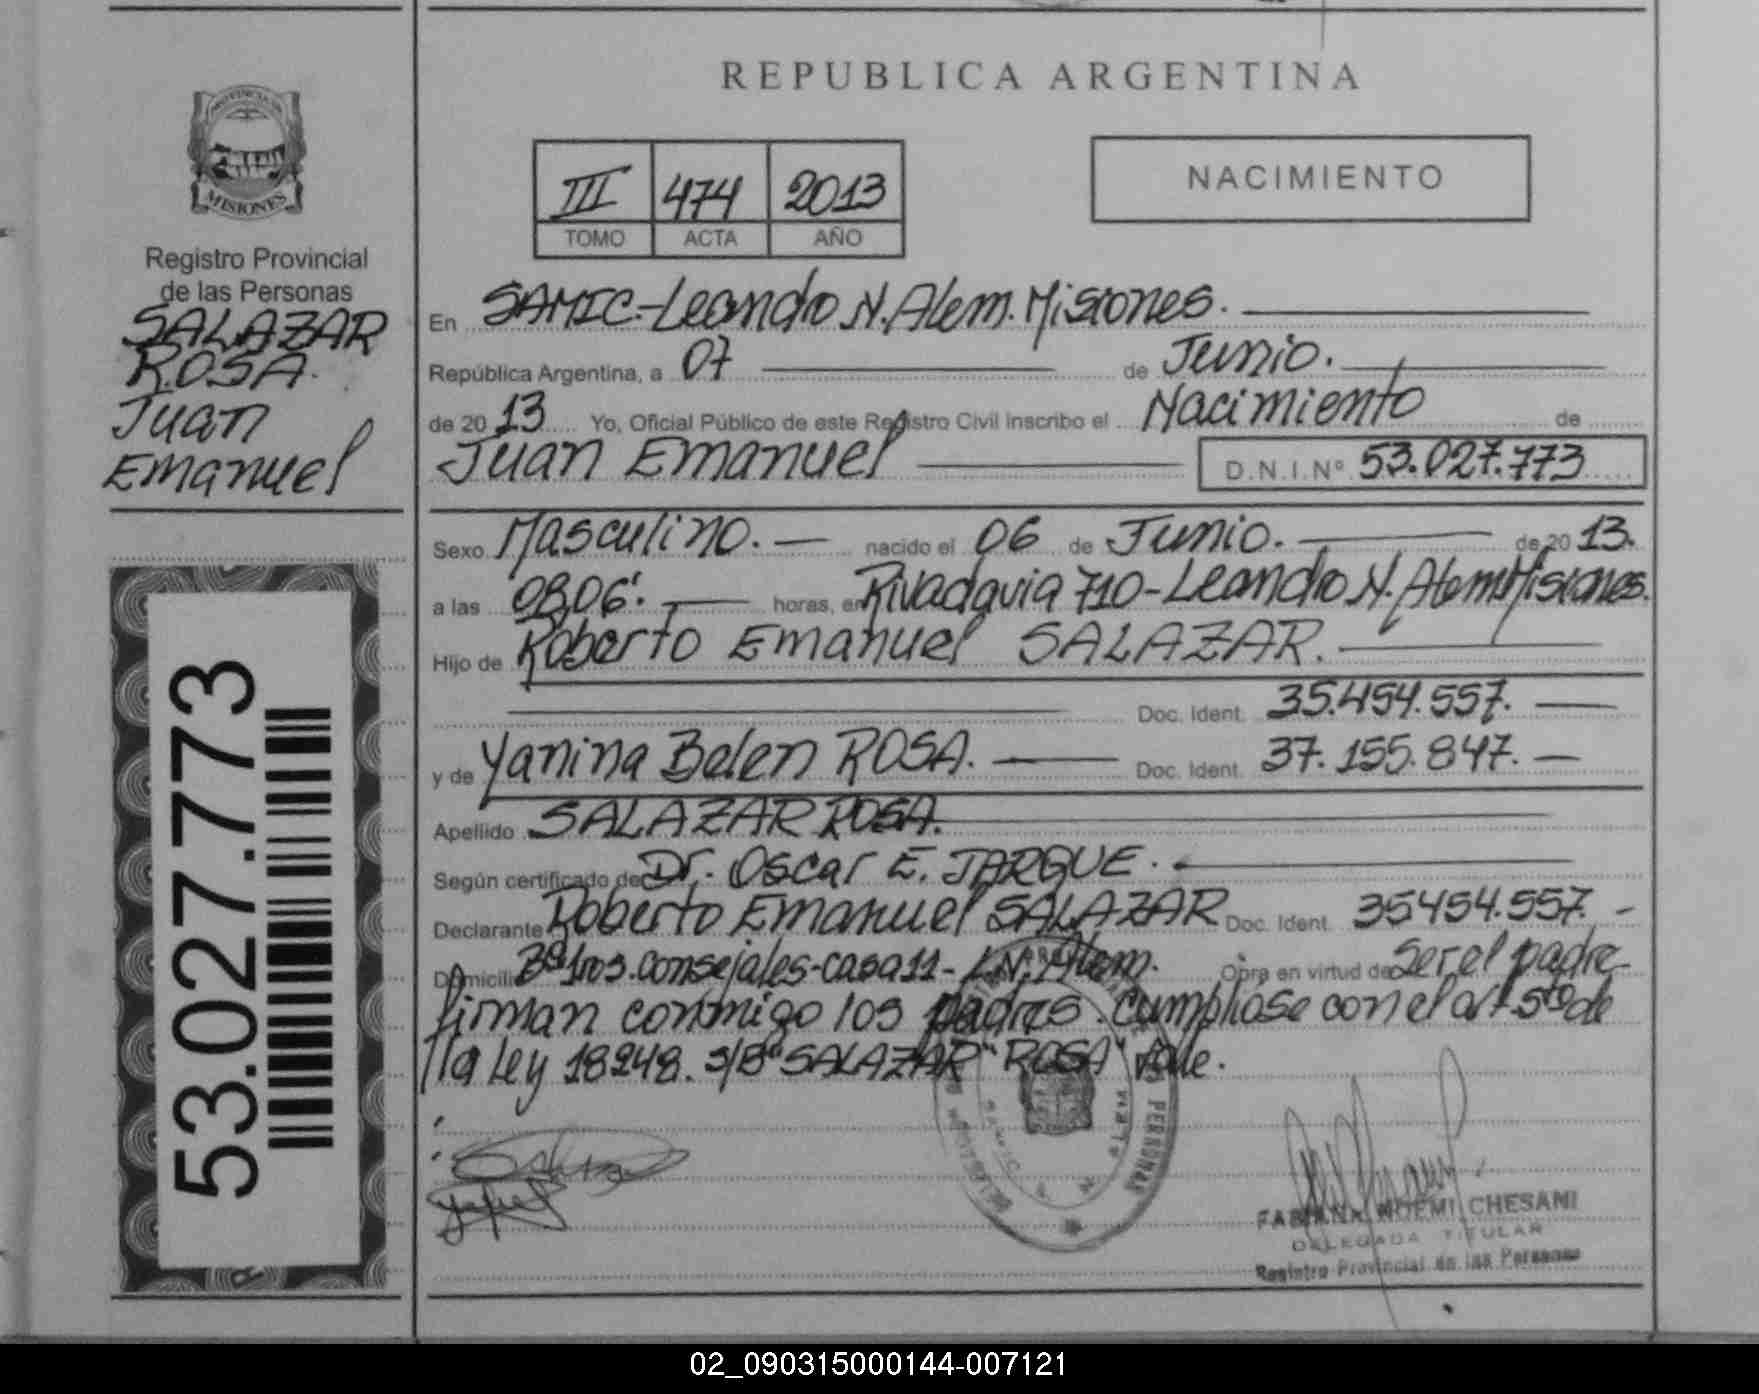 REPUBLICA ARGENTINA
PROVINCIA DE
MISIONES
Registro Provincial
de las Personas
SALAZAR
ROSA.
Juan
Emanuel
53.027.773
III 474 2013
TOMO ACTA AÑO
NACIMIENTO
En SAMIC-Leandro N. Alem. Misiones.
República Argentina, a 07 de Junio.
de 2013 Yo, Oficial Público de este Registro Civil Inscribo el Nacimiento de
Juan Emanuel D.N.I.Nº 53.027.773
Sexo Masculino. nacido el 06 de Junio. de 2013.
a las 08,06'. horas, en Rivadavia 710-Leandro N. Alem Misiones.
Hijo de Roberto Emanuel SALAZAR.
Doc. Ident. 35.454.557.
y de Yanina Belen ROSA. Doc. Ident. 37.155.847.
Apellido SALAZAR ROSA.
Según certificado de Dr. Oscar E. JARQUE.
Declarante Roberto Emanuel SALAZAR Doc. Ident. 35454.557.
Domicilio Bº 1ros. consejales-casa 11- L.N. Alem. Obra en virtud de ser el padre
firman conmigo los padres. cumpliose con el art 5to de
lla Ley 18248. S/B "SALAZAR" "ROSA" vale.
PERSONAS
FABIANA NOEMI CHESANI
DELEGADA TITULAR
Registro Provincial de las Personas
02_090315000144-007121